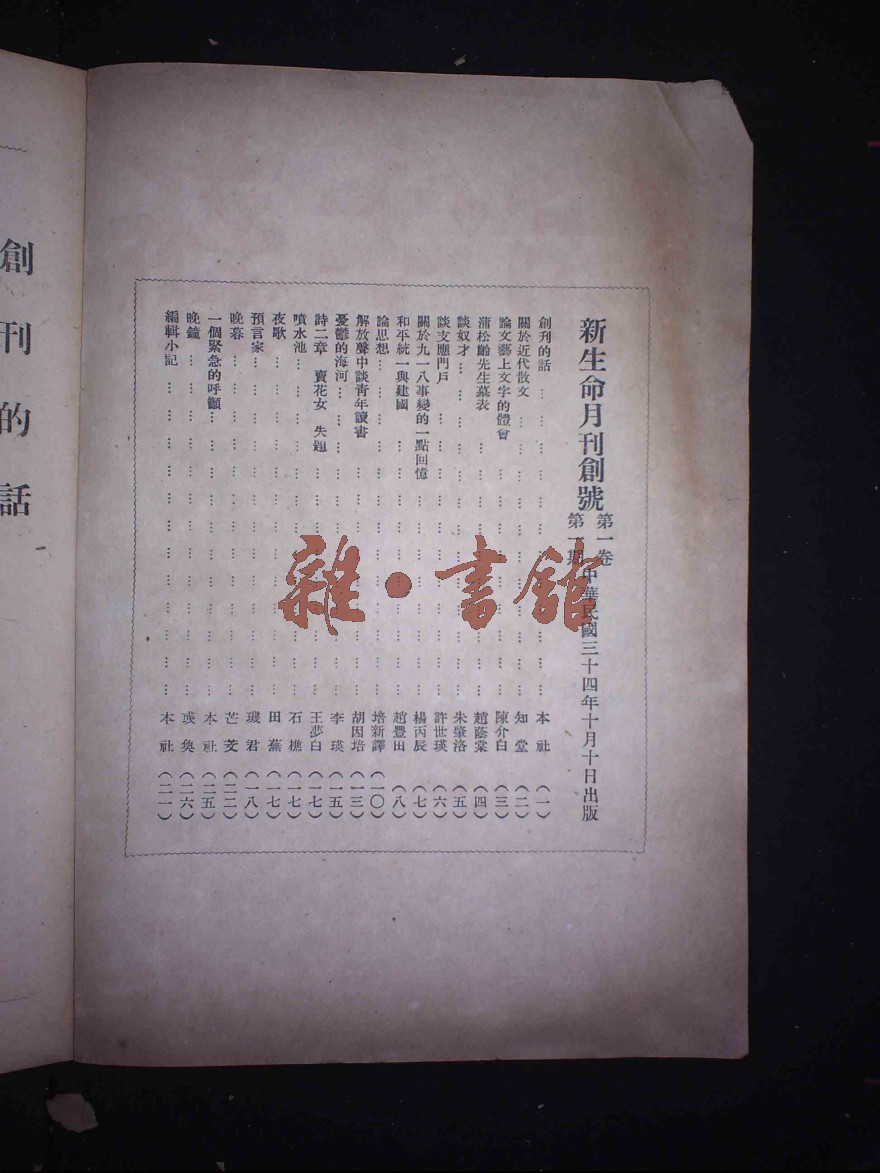 新生命月刊創號
第一卷
第一期
中華民國三十四年十月十日出版
創刊的話 … 本社（一）
關於近代散文 … 知堂（二）
論文藝上文字的體會 … 陳介白（三）
蒲松齡先生墓表 … 趙蔭棠（四）
談奴才 … 朱肇洛（五）
談支應門戶 … 許世瑛（六）
關於九一八事變的一點回憶 … 楊丙辰（七）
和平統一與建國 … 趙豐田（八）
論思想 … 培新譯（一〇）
解放聲中談青年讀書 … 胡因培（一三）
憂鬱的海河 … 李瑛（一五）
詩二章 賣花女 失題 … 王夢白（一七）
噴水池 … 石樵（一七）
夜歌 … 田蕪（一七）
預言家 … 璣君（一八）
晚暮 … 芒芰（二二）
一個緊急的呼籲 … 本社（二五）
晚鐘 … 奐（二六）
編輯小記 … 本社（二一）
創刊的話
雜·書館